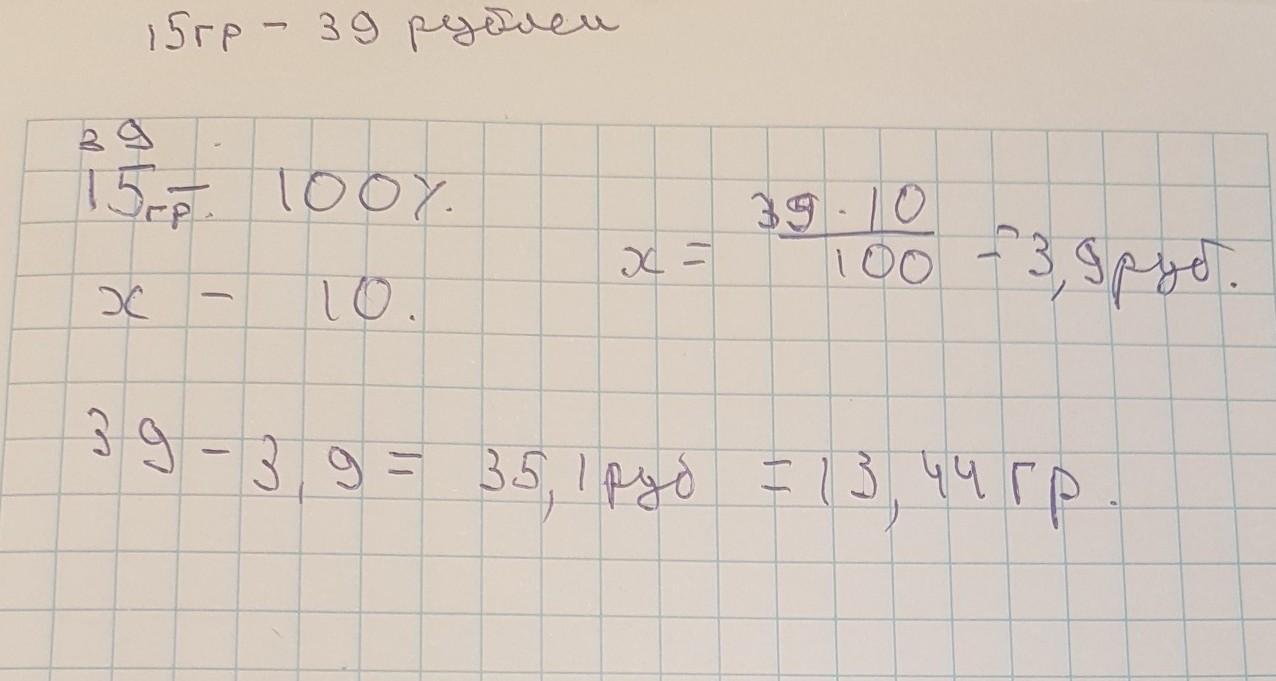 15гр - 39 рублей
39
15гр. - 100%.
х = 39 · 10 / 100 = 3,9 руб.
х - 10.
39 - 3,9 = 35,1 руб = 13,44 гр.